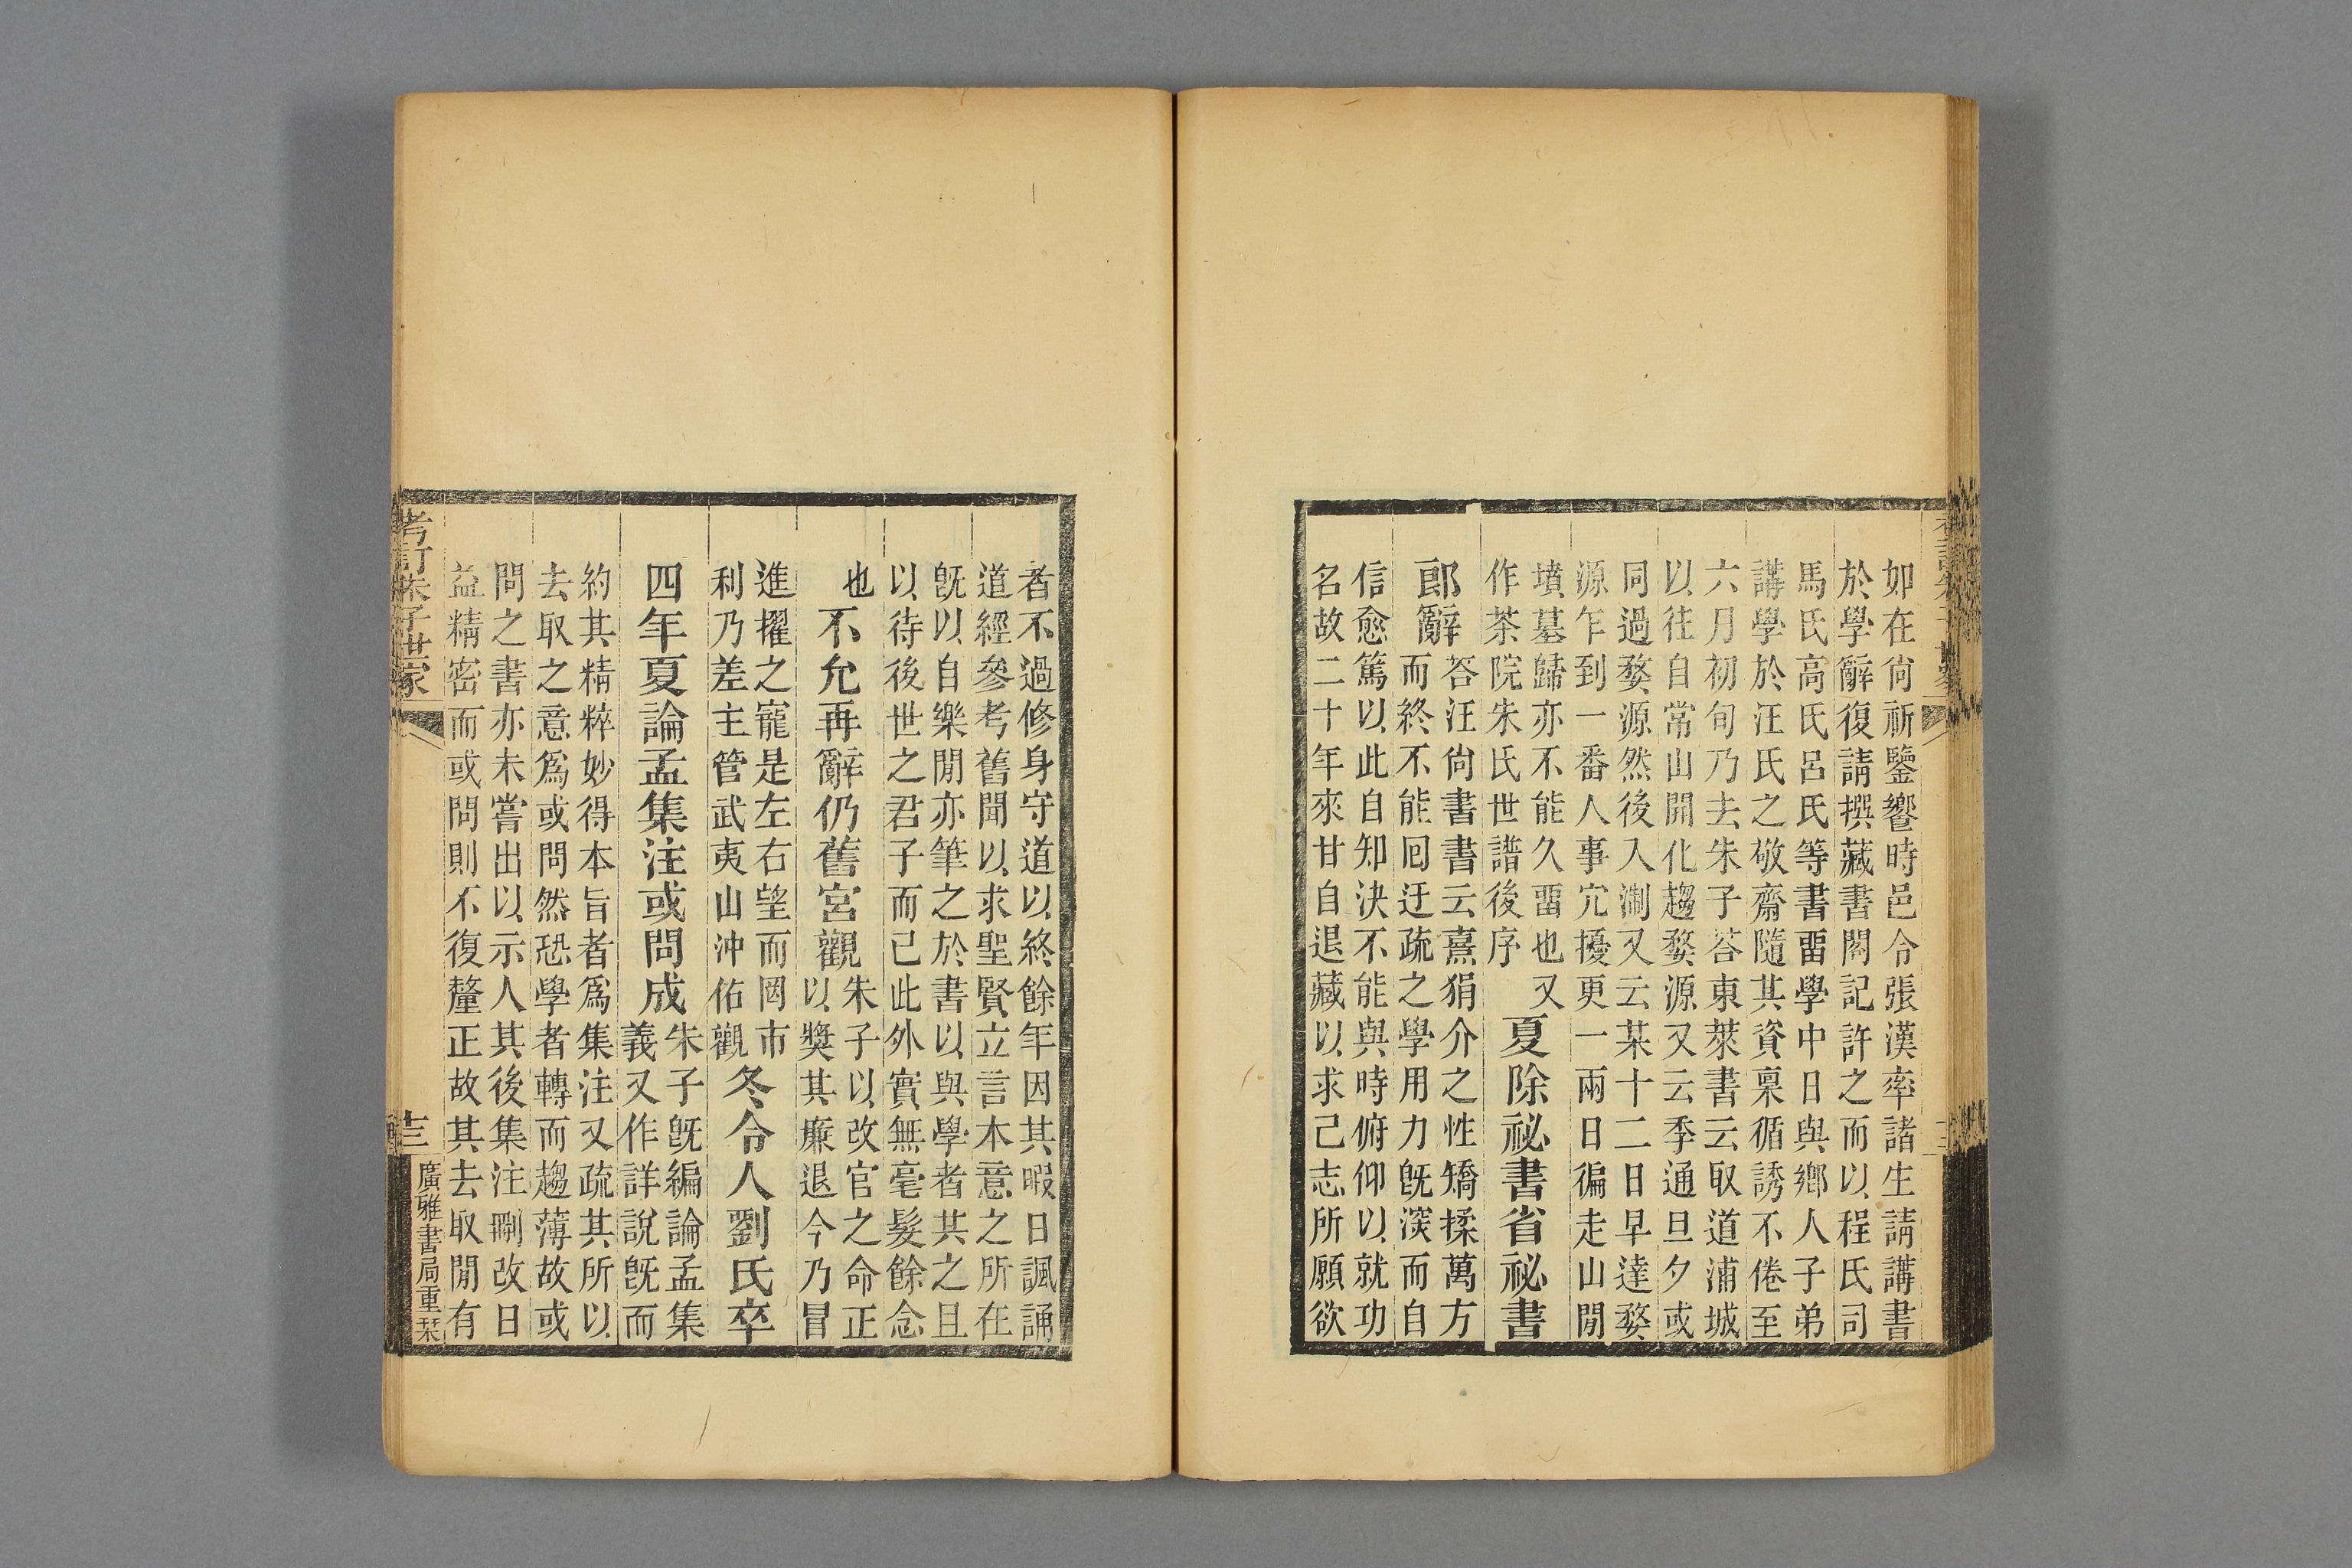 如在尙祈鑒響時邑令張漢率諸生請講書
於學辭復請撰藏書閣記許之而以程氏司
馬氏高氏呂氏等書畱學中日與鄉人子弟
講學於汪氏之敬齋隨其資稟循誘不倦至
六月初旬乃去朱子荅東萊書云取道浦城
以往自常山開化趨婺源又云季通旦夕或
同過婺源然後入淛又云某十二日早達婺
源乍到一番人事宂擾更一兩日徧走山閒
墳墓歸亦不能久畱也又
作茶院朱氏世譜後序
夏除祕書省祕書
郎辭
荅汪尙書書云熹狷介之性矯揉萬方
而終不能囘迂疏之學用力旣深而自
信愈篤以此自知決不能與時俯仰以就功
名故二十年來甘自退藏以求己志所願欲
者不過修身守道以終餘年因其暇日諷誦
道經參考舊聞以求聖賢立言本意之所在
旣以自樂閒亦筆之於書以與學者其之且
以待後世之君子而已此外實無毫髮餘念
也
不允再辭仍舊宮觀
朱子以改官之命正
以獎其廉退今乃冒
進擢之寵是左右望而罔市
利乃差主管武夷山沖佑觀
冬令人劉氏卒
四年夏論孟集注或問成
朱子旣編論孟集
義又作詳說旣而
約其精粹妙得本旨者爲集注又疏其所以
去取之意爲或問然恐學者轉而趨薄故或
問之書亦未嘗出以示人其後集注刪改日
益精密而或問則不復釐正故其去取閒有
考訂朱子世家
十三
廣雅書局重栞